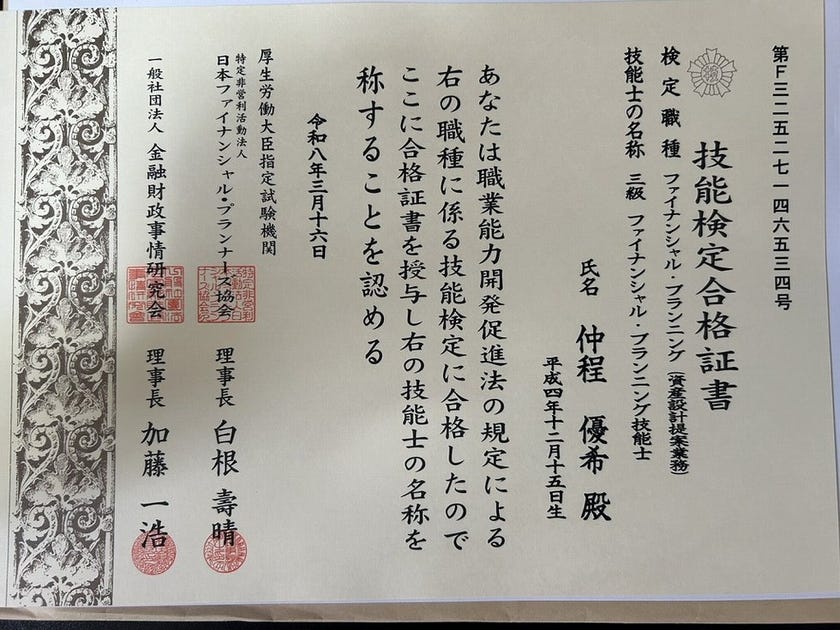 第F三二五二七一四六五三四号
技能検定合格証書
検定職種 ファイナンシャル・プランニング(資産設計提案業務)
技能士の名称 三級 ファイナンシャル・プランニング技能士
氏名 仲程 優希 殿
平成四年十二月十五日生
あなたは職業能力開発促進法の規定による
右の職種に係る技能検定に合格したので
ここに合格証書を授与し右の技能士の名称を
称することを認める
令和八年三月十六日
厚生労働大臣指定試験機関
特定非営利活動法人
日本ファイナンシャル・プランナーズ協会 理事長 白根 壽晴
一般社団法人 金融財政事情研究会 理事長 加藤 一浩